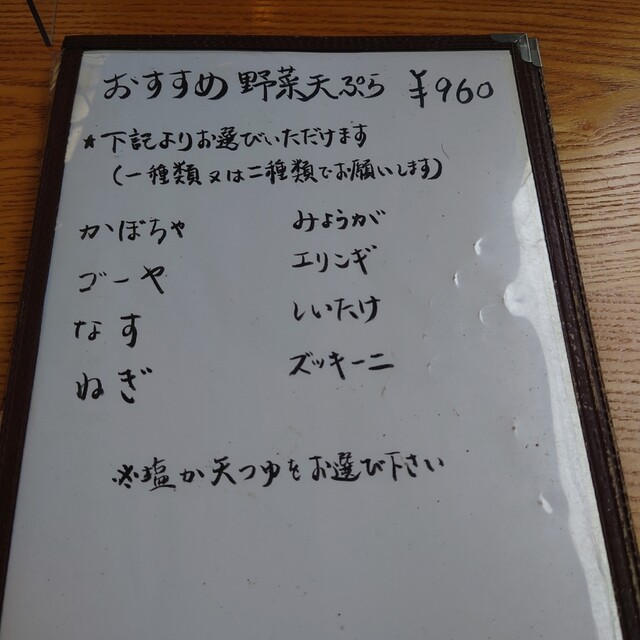 おすすめ 野菜天ぷら ¥960
★下記よりお選びいただけます
(一種類又は二種類でお願いします)
かぼちゃ
ゴーヤ
なす
ねぎ
みょうが
エリンギ
しいたけ
ズッキーニ
※塩か天つゆをお選び下さい